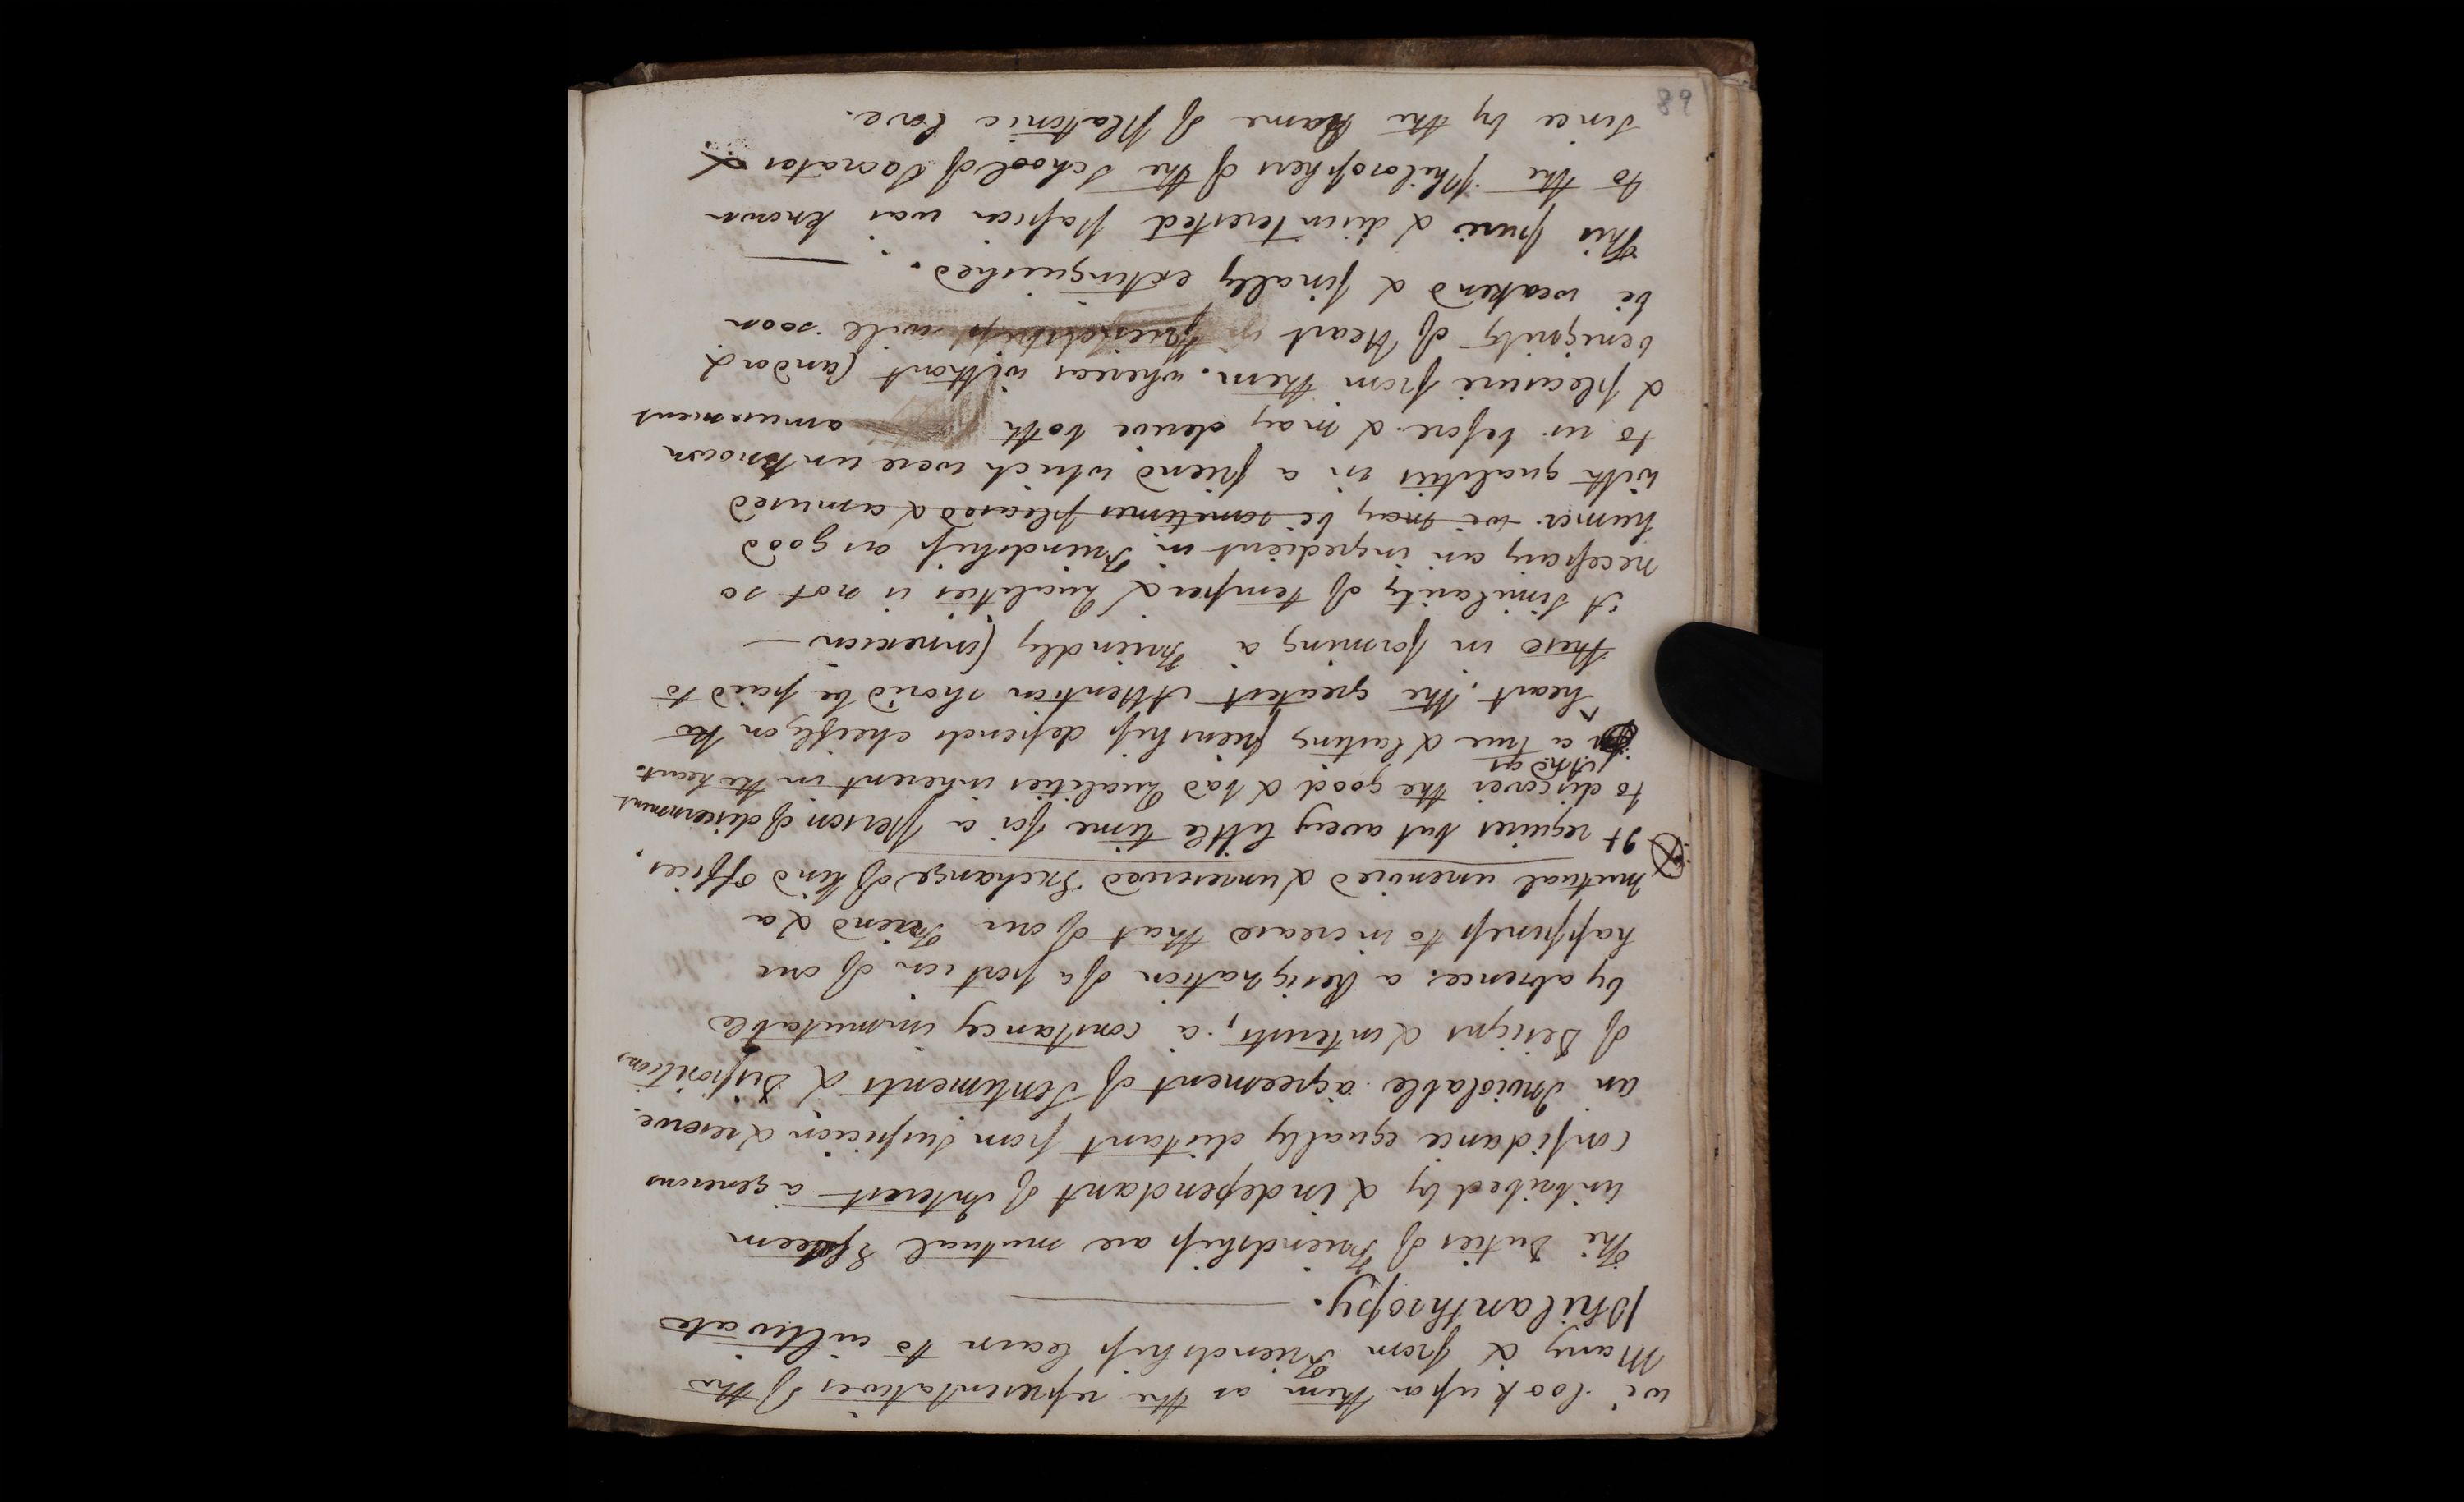 we look upon them as the representatives of the
Many & from Friendship learn to cultivate
Philanthropy.
The Duties of Friendship are mutual Esteem
unbribed by & independant of Interest a generous
confidance equally distant from suspicion & reserve.
an Inviolable agreement of Sentiments & Dispositions
of Designs & interests, a constancy immutable
by absence, a Resignation of a portion of our
happiness to increase that of our Friend & a
mutual unenvied & unreserved Exchange of kind offices,
It requires but a very little time for a Person of discernment
to discover the good & bad Qualities inherent in the heart.
And as
a true & lasting frienship depends cheifly on the
heart, the greatest Attention should be paid to
these in forming a Friendly Connexion —
A Similarity of temper & Qualities is not so
necessary an ingredient in Friendship as good
humer. we may be sometimes pleased & amused
with qualities in a friend which were unknown
to us before & may derive both amusement
& pleasure from them. whereas without Candor &
benignity of Heart friendship will soon
be weakend & finally extinguished. —
This pure & disinterested Passion was known
to the Philosophers of the School of Socrates &
since by the Name of Platonic Love.
89